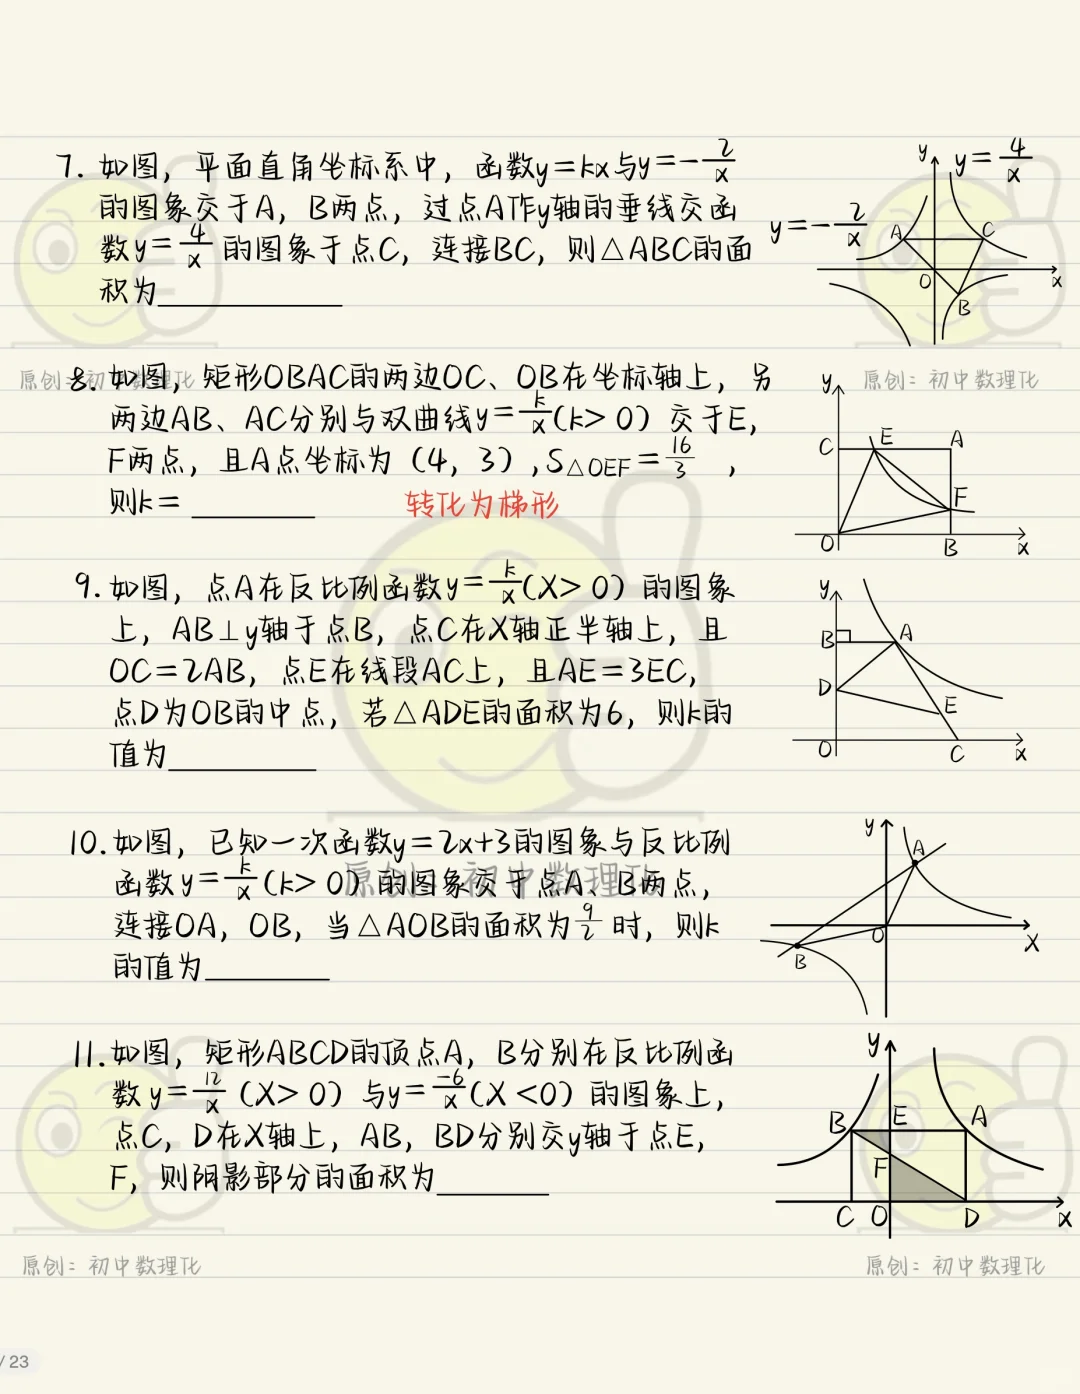 7. 如图，平面直角坐标系中，函数y=kx与y=-2/x
的图象交于A，B两点，过点A作y轴的垂线交函
数y=4/x的图象于点C，连接BC，则△ABC的面
积为________
y y=4/x
y=-2/x A C
O x
B
原创：初中数理化
8. 如图，矩形OBAC的两边OC、OB在坐标轴上，另
两边AB、AC分别与双曲线y=k/x(k>0）交于E，
F两点，且A点坐标为（4，3）,S△OEF=16/3，
则k=________
转化为梯形
y
C E A
F
O B x
原创：初中数理化
9. 如图，点A在反比例函数y=k/x(X>0）的图象
上，AB⊥y轴于点B，点C在X轴正半轴上，且
OC=2AB，点E在线段AC上，且AE=3EC，
点D为OB的中点，若△ADE的面积为6，则k的
值为________
y
B A
D
E
O C x
10. 如图，已知一次函数y=2x+3的图象与反比例
函数y=k/x(k>0）的图象交于点A、B两点，
连接OA，OB，当△AOB的面积为9/2时，则k
的值为________
原创：初中数理化
y
A
O X
B
11. 如图，矩形ABCD的顶点A，B分别在反比例函
数y=12/x（X>0）与y=-6/x(X<0）的图象上，
点C，D在X轴上，AB，BD分别交y轴于点E，
F，则阴影部分的面积为________
y
B E A
F
C O D x
原创：初中数理化
原创：初中数理化
/ 23